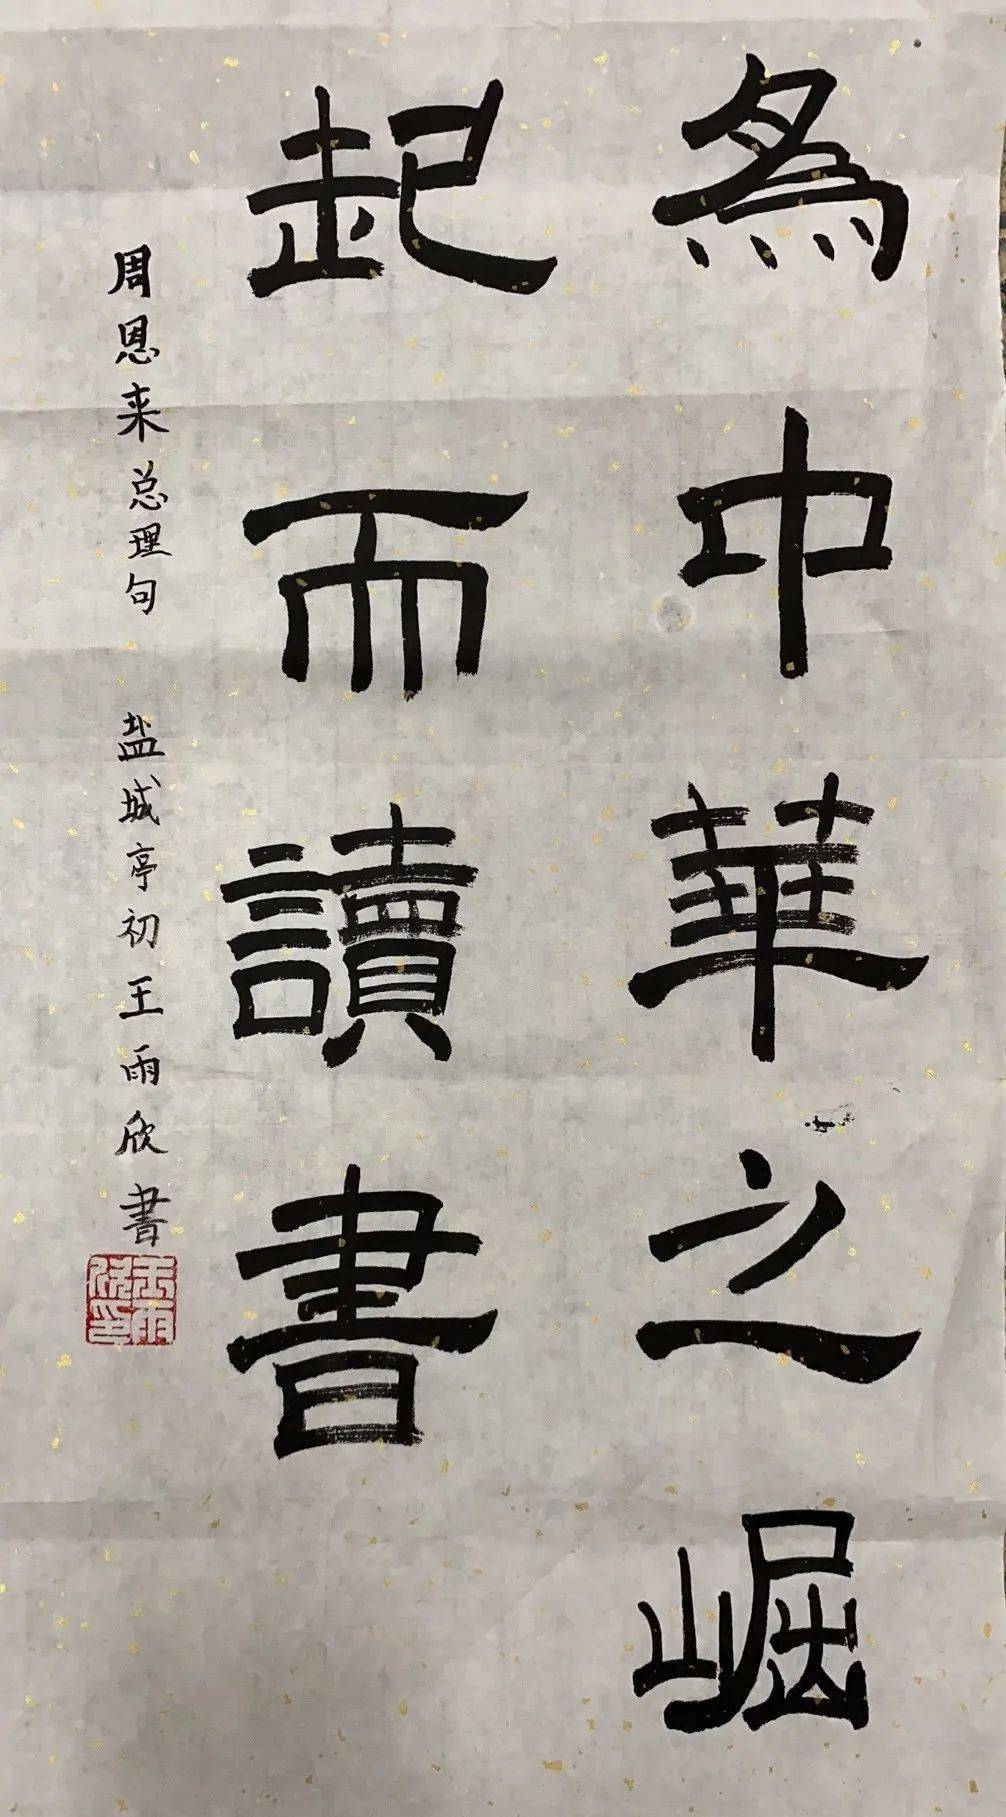 為中華之崛
起而讀書
周恩来总理句 盐城亭初王雨欣書
王雨欣印